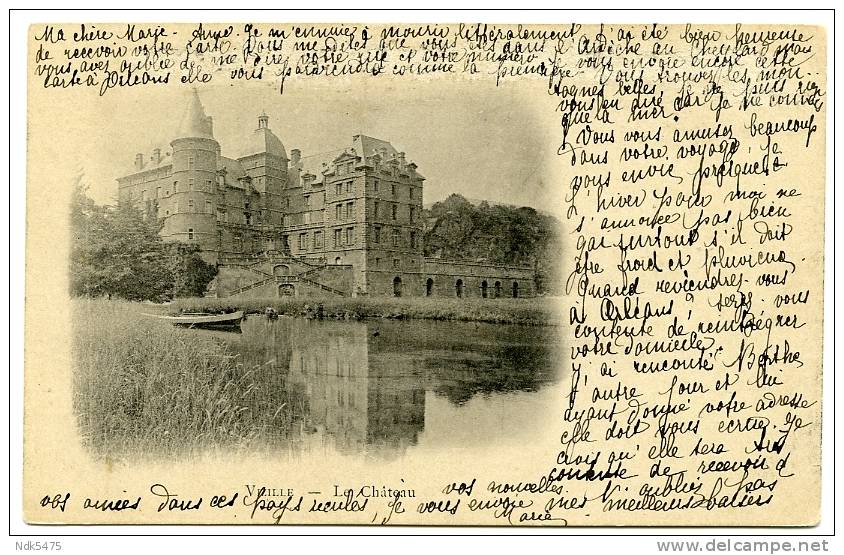 Ma chère Marie-Anne. Je m'ennuie à mourir littéralement J'ai été bien heureuse
de recevoir votre carte. Vous me dites que vous êtes dans l'Ardèche au Cheylard mais
vous avez oublié de me dire votre rue et votre numéro Je vous envoie encore cette
carte à Orléans elle vous parviendra comme la première Vous trouvez les mon-
tagnes belles, je ne puis rien
vous en dire car je ne connais
que la mer.
Vous vous amusez beaucoup
dans votre voyage, je
vous envie presque
L'hiver pour moi ne
s'annonce pas bien
gai surtout s'il doit
être froid et pluvieux
Quand reviendrez-vous
à Orléans, serez-vous
contente de réintégrer
votre domicile.
J'ai rencontré Berthe
l'autre jour et lui
ayant donné votre adresse
elle doit vous écrire. Je
crois qu'elle sera très
contente de recevoir
vos nouvelles. N'oubliez pas
VIZILLE — Le Château
vos amies dans ces pays reculés, je vous envoie mes meilleurs baisers
Marie
Ndk5475
www.delcampe.net